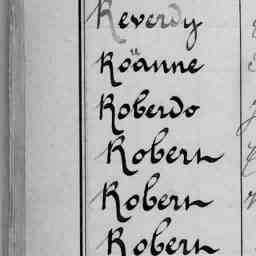 Reverdy
Roänne
Roberdo
Robert
Robert
Robert